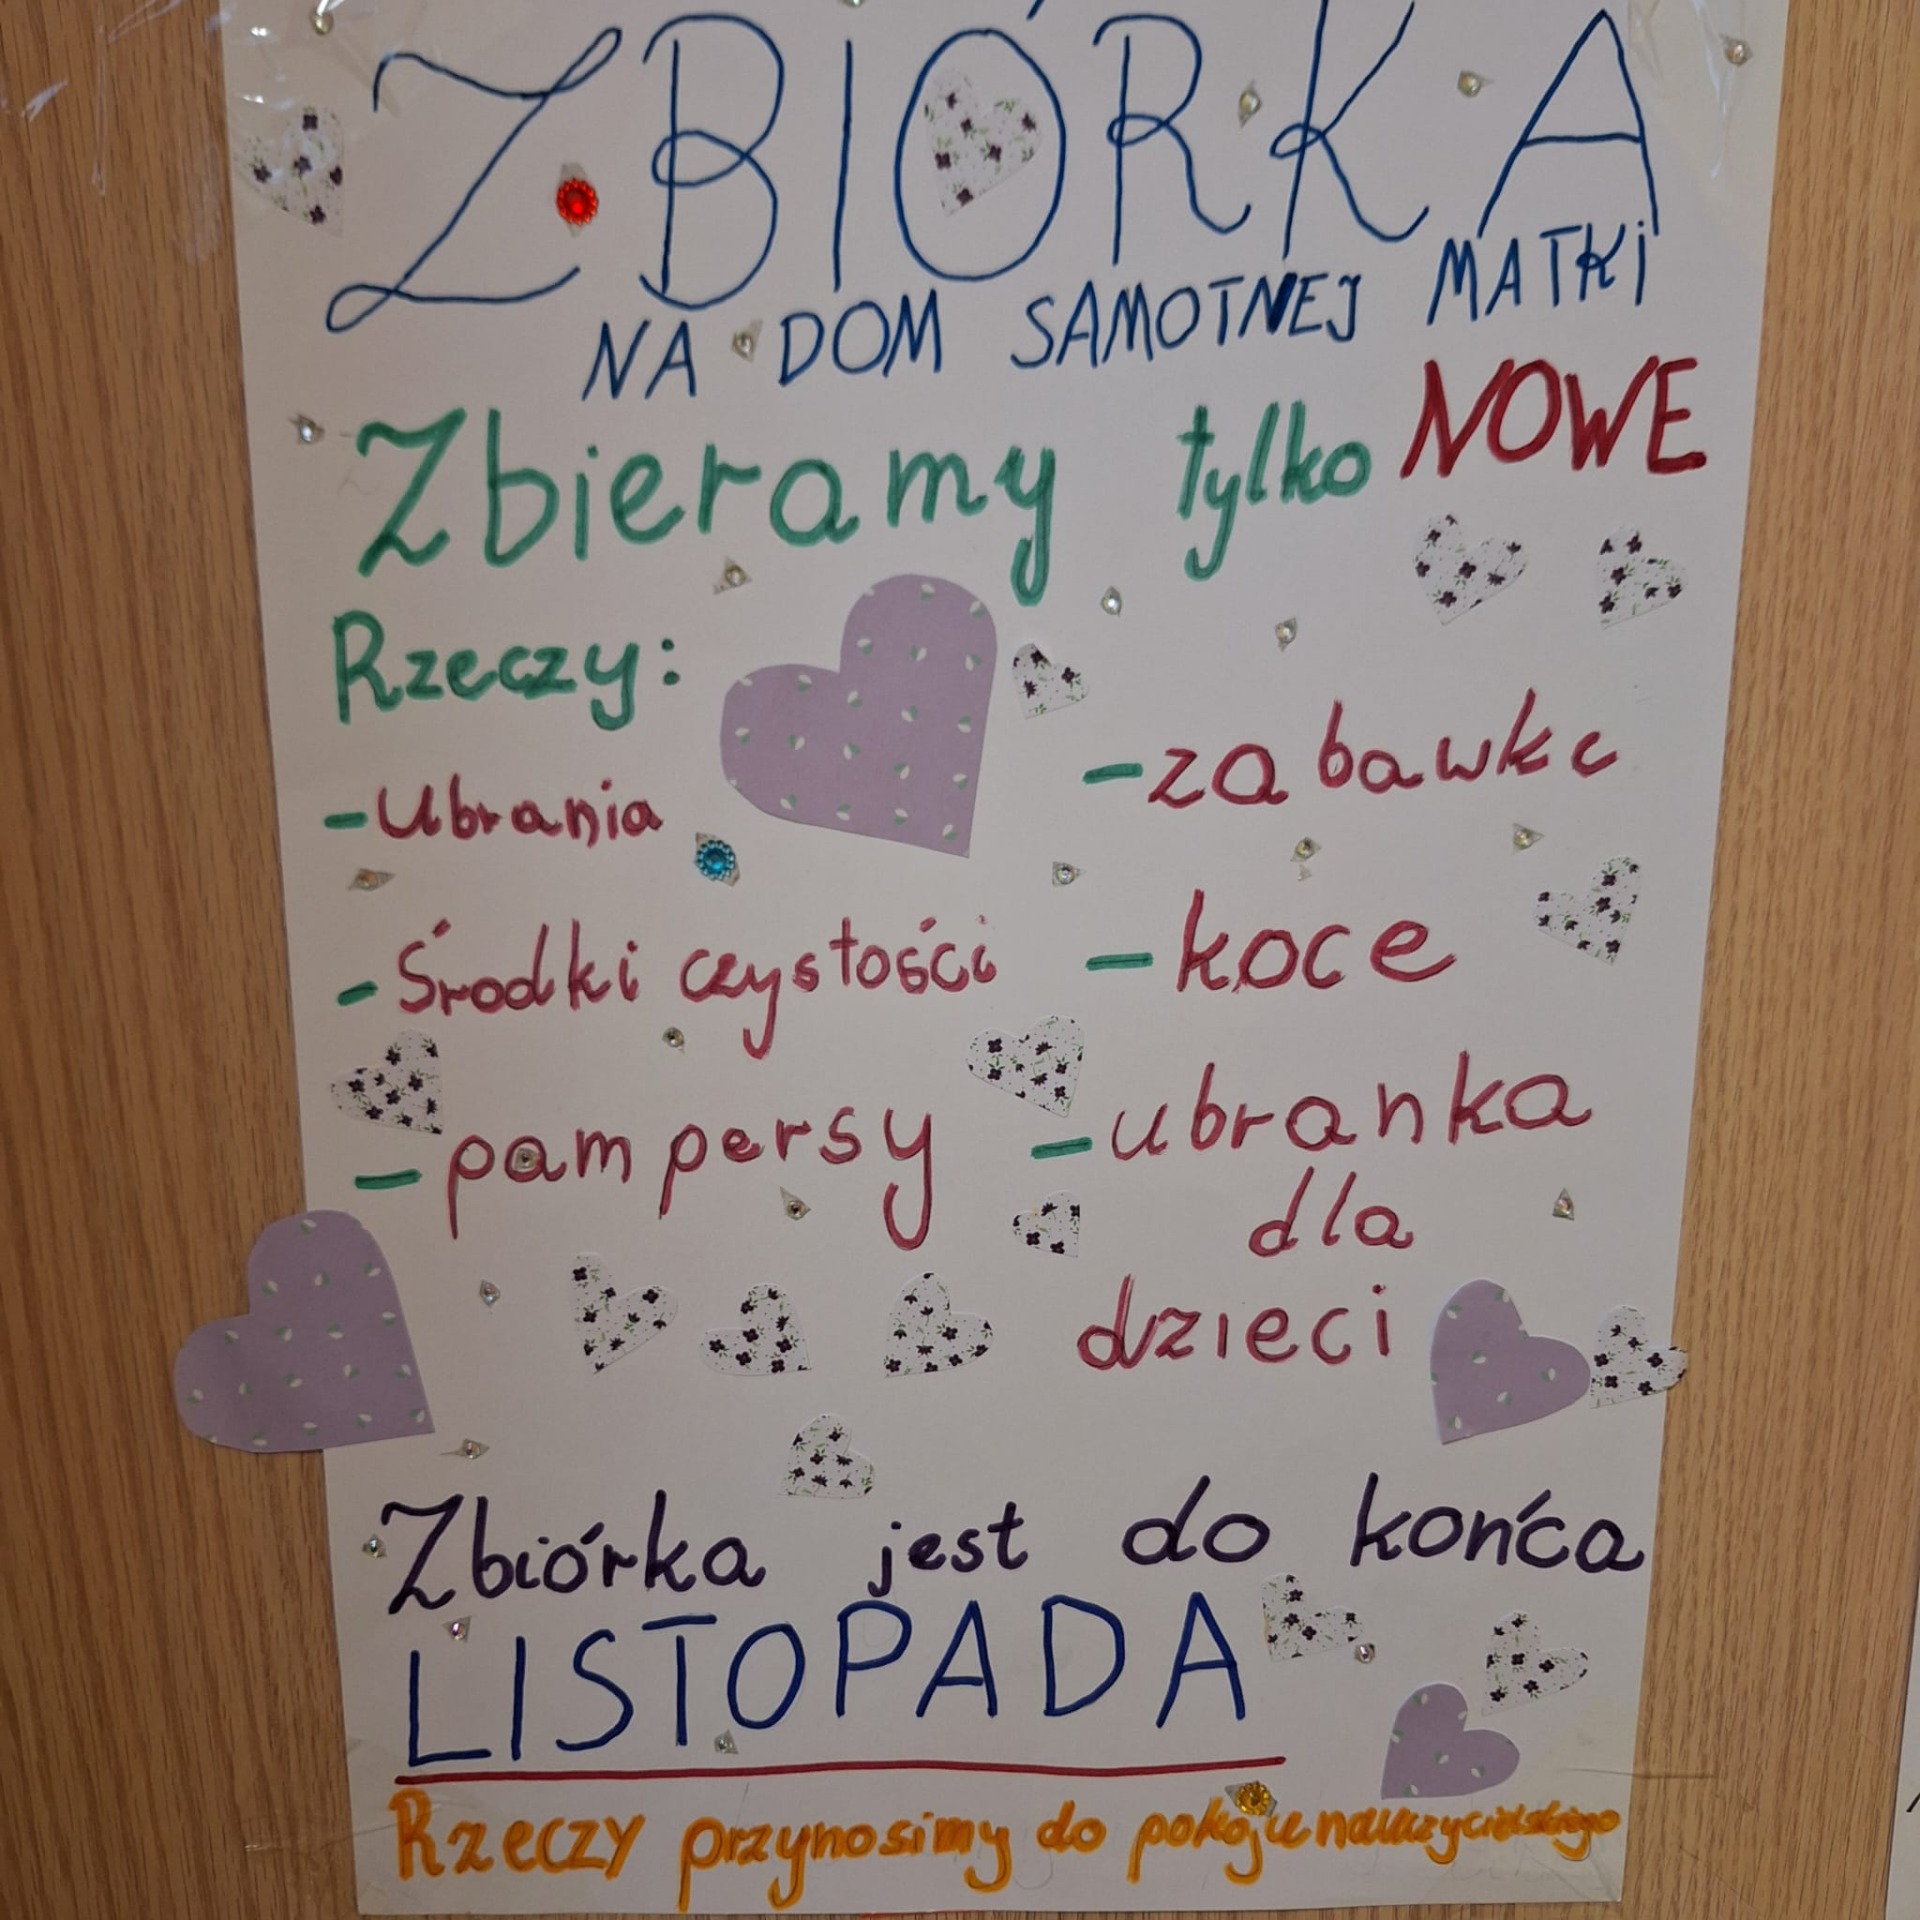 ZBIÓRKA
NA DOM SAMOTNEJ MATKI
Zbieramy tylko NOWE
Rzeczy:
- Ubrania
- Środki czystości
- pampersy
- zabawki
- koce
- ubranka
dla
dzieci
Zbiórka jest do końca
LISTOPADA
Rzeczy przynosimy do pokoju nauczycielskiego